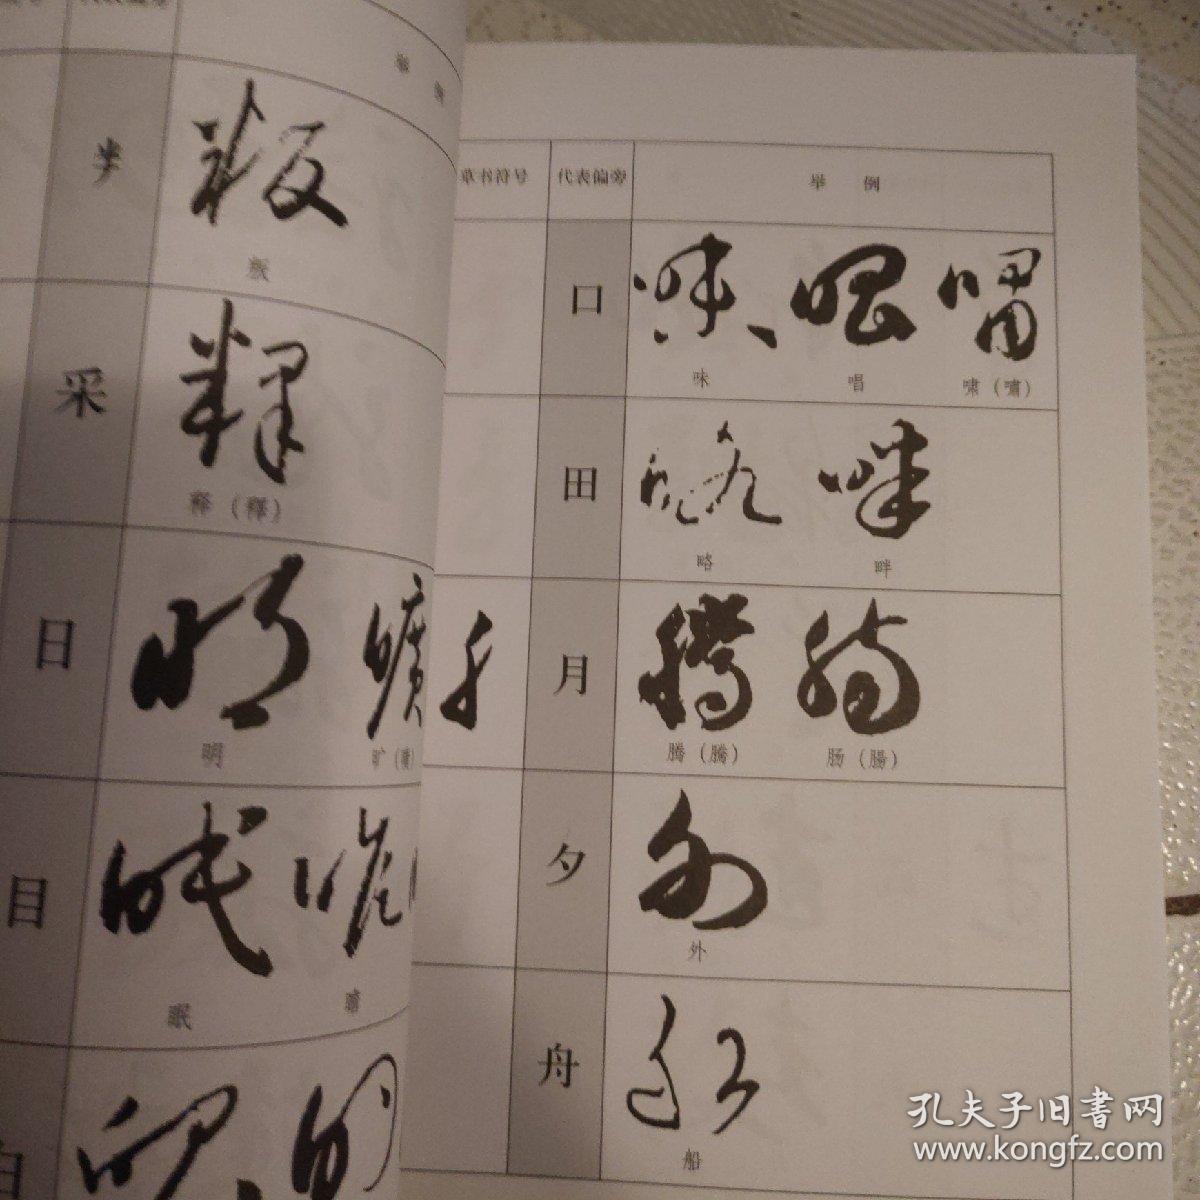 举 例
粄
采
释（釋）
日
明
旷（曠）
目
眠
瞻
草书符号 代表偏旁 举 例
口
味 唱 啸（嘯）
田
略 畔
月
腾（騰） 肠（腸）
夕
外
舟
船
孔夫子旧书网
www.kongfz.com